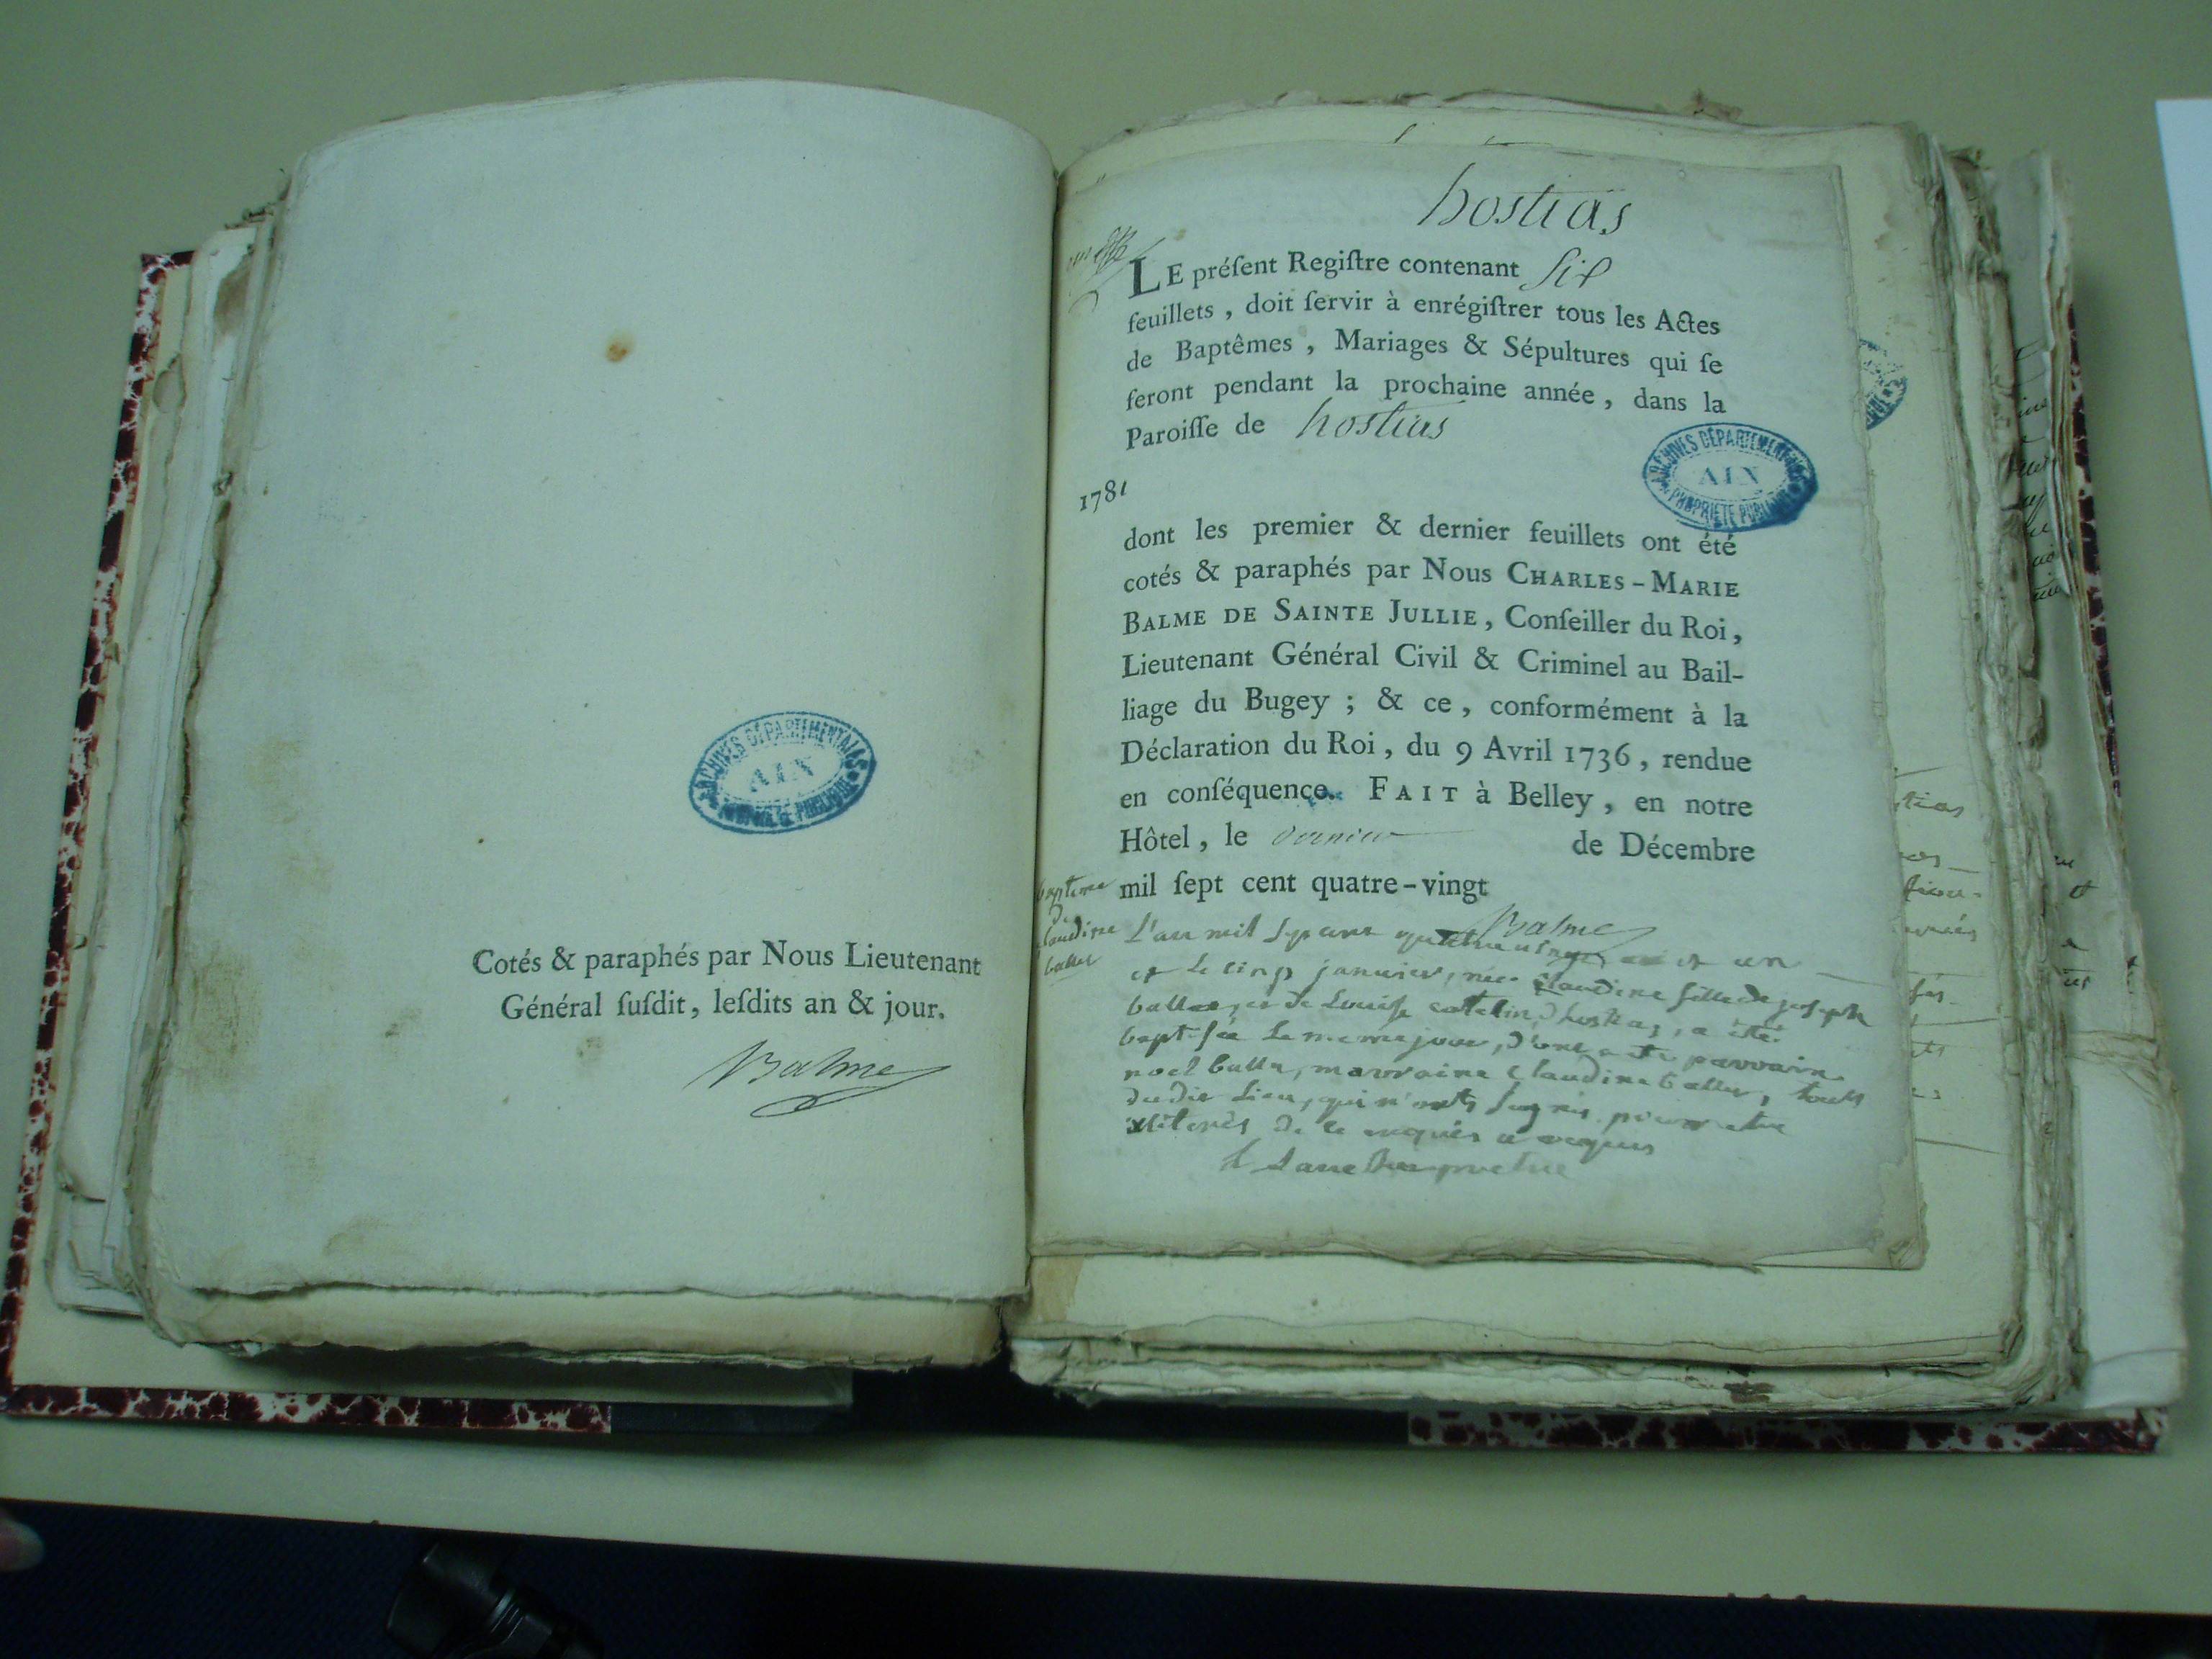 ARCHIVES DÉPARTEMENTALES
AIN
PROPRIÉTÉ PUBLIQUE
Cotés & paraphés par Nous Lieutenant
Général ſuſdit, leſdits an & jour.
Balme
hostias
LE préſent Regiſtre contenant Six
feuillets, doit ſervir à enrégiſtrer tous les Actes
de Baptêmes, Mariages & Sépultures qui ſe
feront pendant la prochaine année, dans la
Paroiſſe de hostias
ARCHIVES DÉPARTEMENTALES
AIN
PROPRIÉTÉ PUBLIQUE
1781
dont les premier & dernier feuillets ont été
cotés & paraphés par Nous CHARLES-MARIE
BALME DE SAINTE JULLIE, Conſeiller du Roi,
Lieutenant Général Civil & Criminel au Bail-
liage du Bugey ; & ce, conformément à la
Déclaration du Roi, du 9 Avril 1736, rendue
en conſéquence. FAIT à Belley, en notre
Hôtel, le dernier de Décembre
mil ſept cent quatre-vingt
Balme
bapteme
de
claudine
L'an mil sept cent quatre vingt et un
et le cinq janvier, née claudine fille de joseph
de Louise hostias, a été
baptisée le meme jour, parrain
noel marraine claudine tous
dudit lieu, qui n'ont signé pour etre
de ce enquis